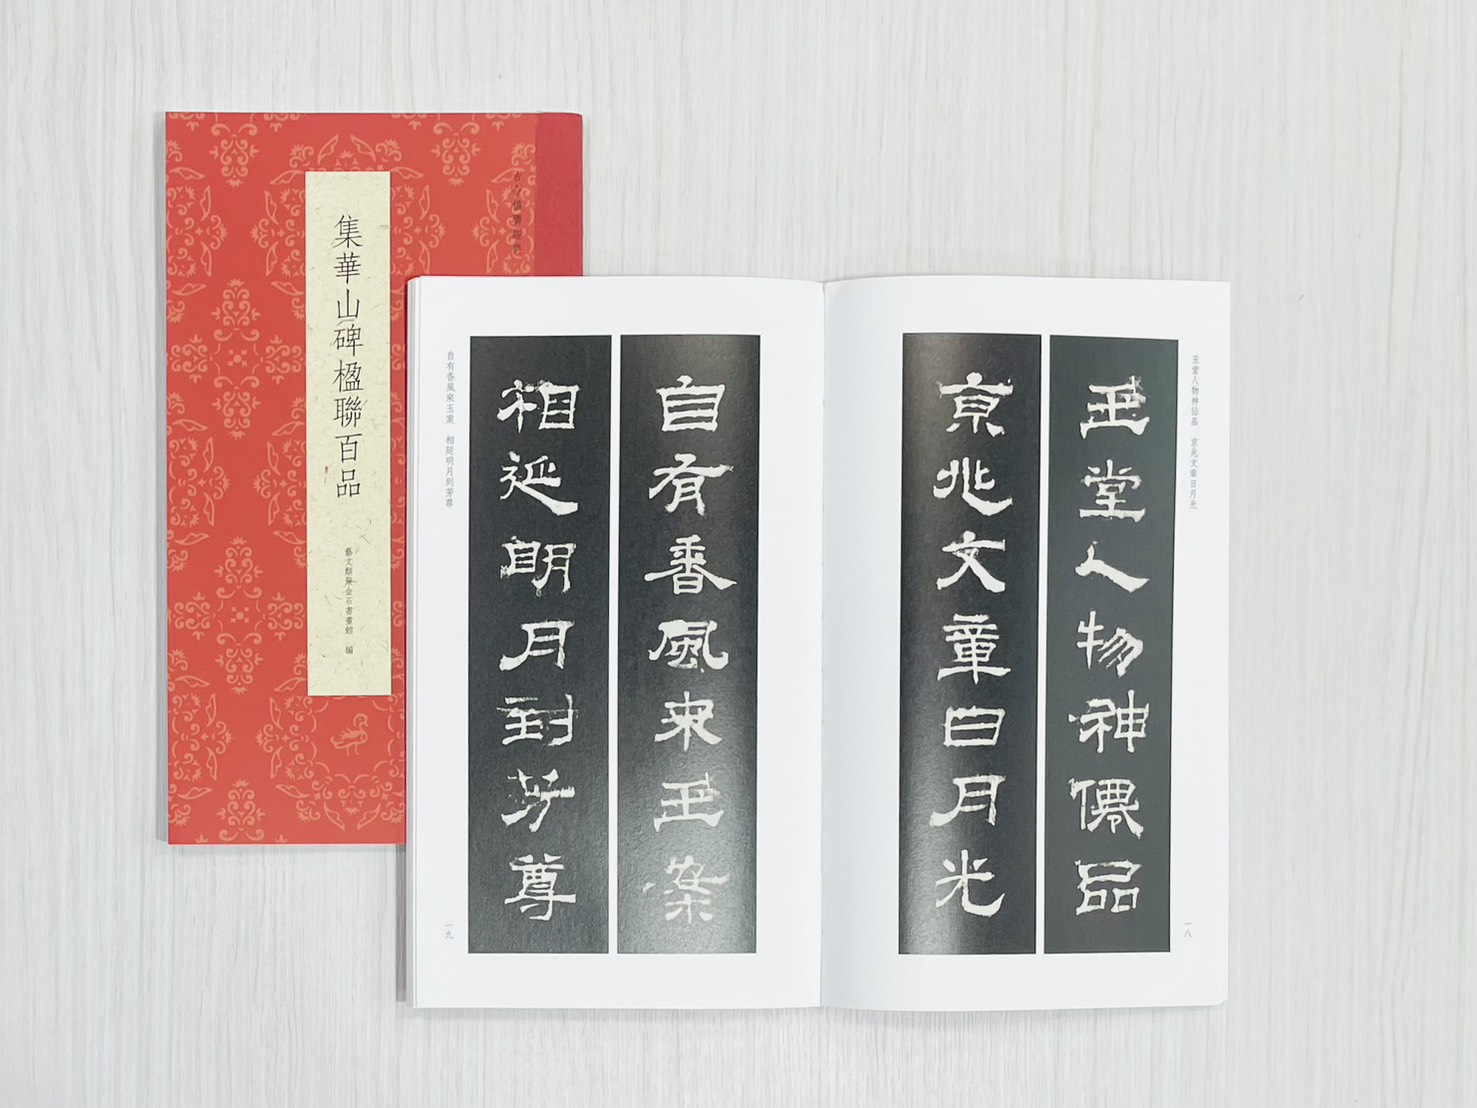 集華山碑楹聯百品
藝文類聚金石書畫館 編
玉堂人物神仙品 京兆文章日月光
玉堂人物神僊品
京兆文章日月光
一八
自有香風來玉案
相延明月到芳尊
自有香風來玉案 相延明月到芳尊
一九